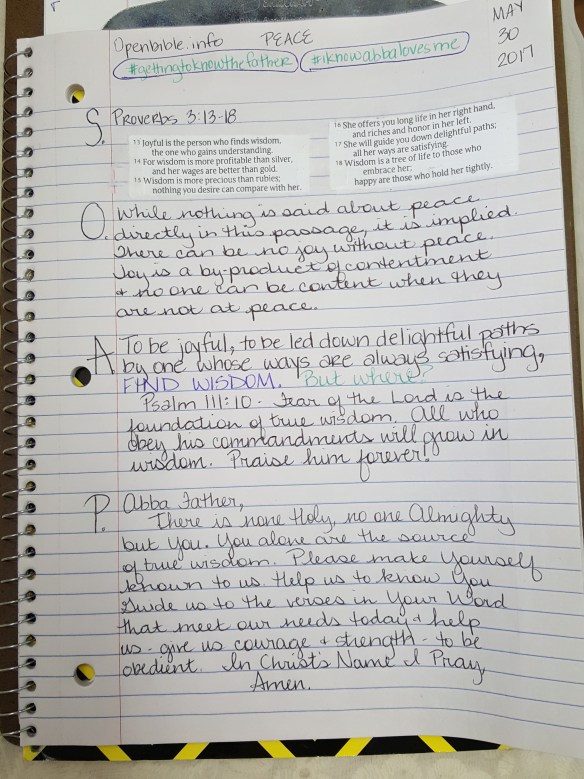 Openbible.info PEACE
MAY
30
2017
#gettingtoknowthefather #iknowabbalovesme
S. Proverbs 3:13-18
13 Joyful is the person who finds wisdom,
the one who gains understanding.
14 For wisdom is more profitable than silver,
and her wages are better than gold.
15 Wisdom is more precious than rubies;
nothing you desire can compare with her.
16 She offers you long life in her right hand,
and riches and honor in her left.
17 She will guide you down delightful paths;
all her ways are satisfying.
18 Wisdom is a tree of life to those who
embrace her;
happy are those who hold her tightly.
O. While nothing is said about peace
directly in this passage, it is implied.
There can be no joy without peace.
Joy is a by-product of contentment
+ no one can be content when they
are not at peace.
A To be joyful, to be led down delightful paths
by one whose ways are always satisfying,
FIND WISDOM. But where?
Psalm 111:10 - Fear of the Lord is the
foundation of true wisdom. All who
obey his commandments will grow in
wisdom. Praise him forever!
P. Abba Father,
There is none Holy, no one Almighty
but You. You alone are the source
of true wisdom. Please make Yourself
known to us. Help us to know You
Guide us to the verses in Your Word
that meet our needs today + help
us - give us courage + strength - to be
obedient. In Christ's Name I Pray,
Amen.